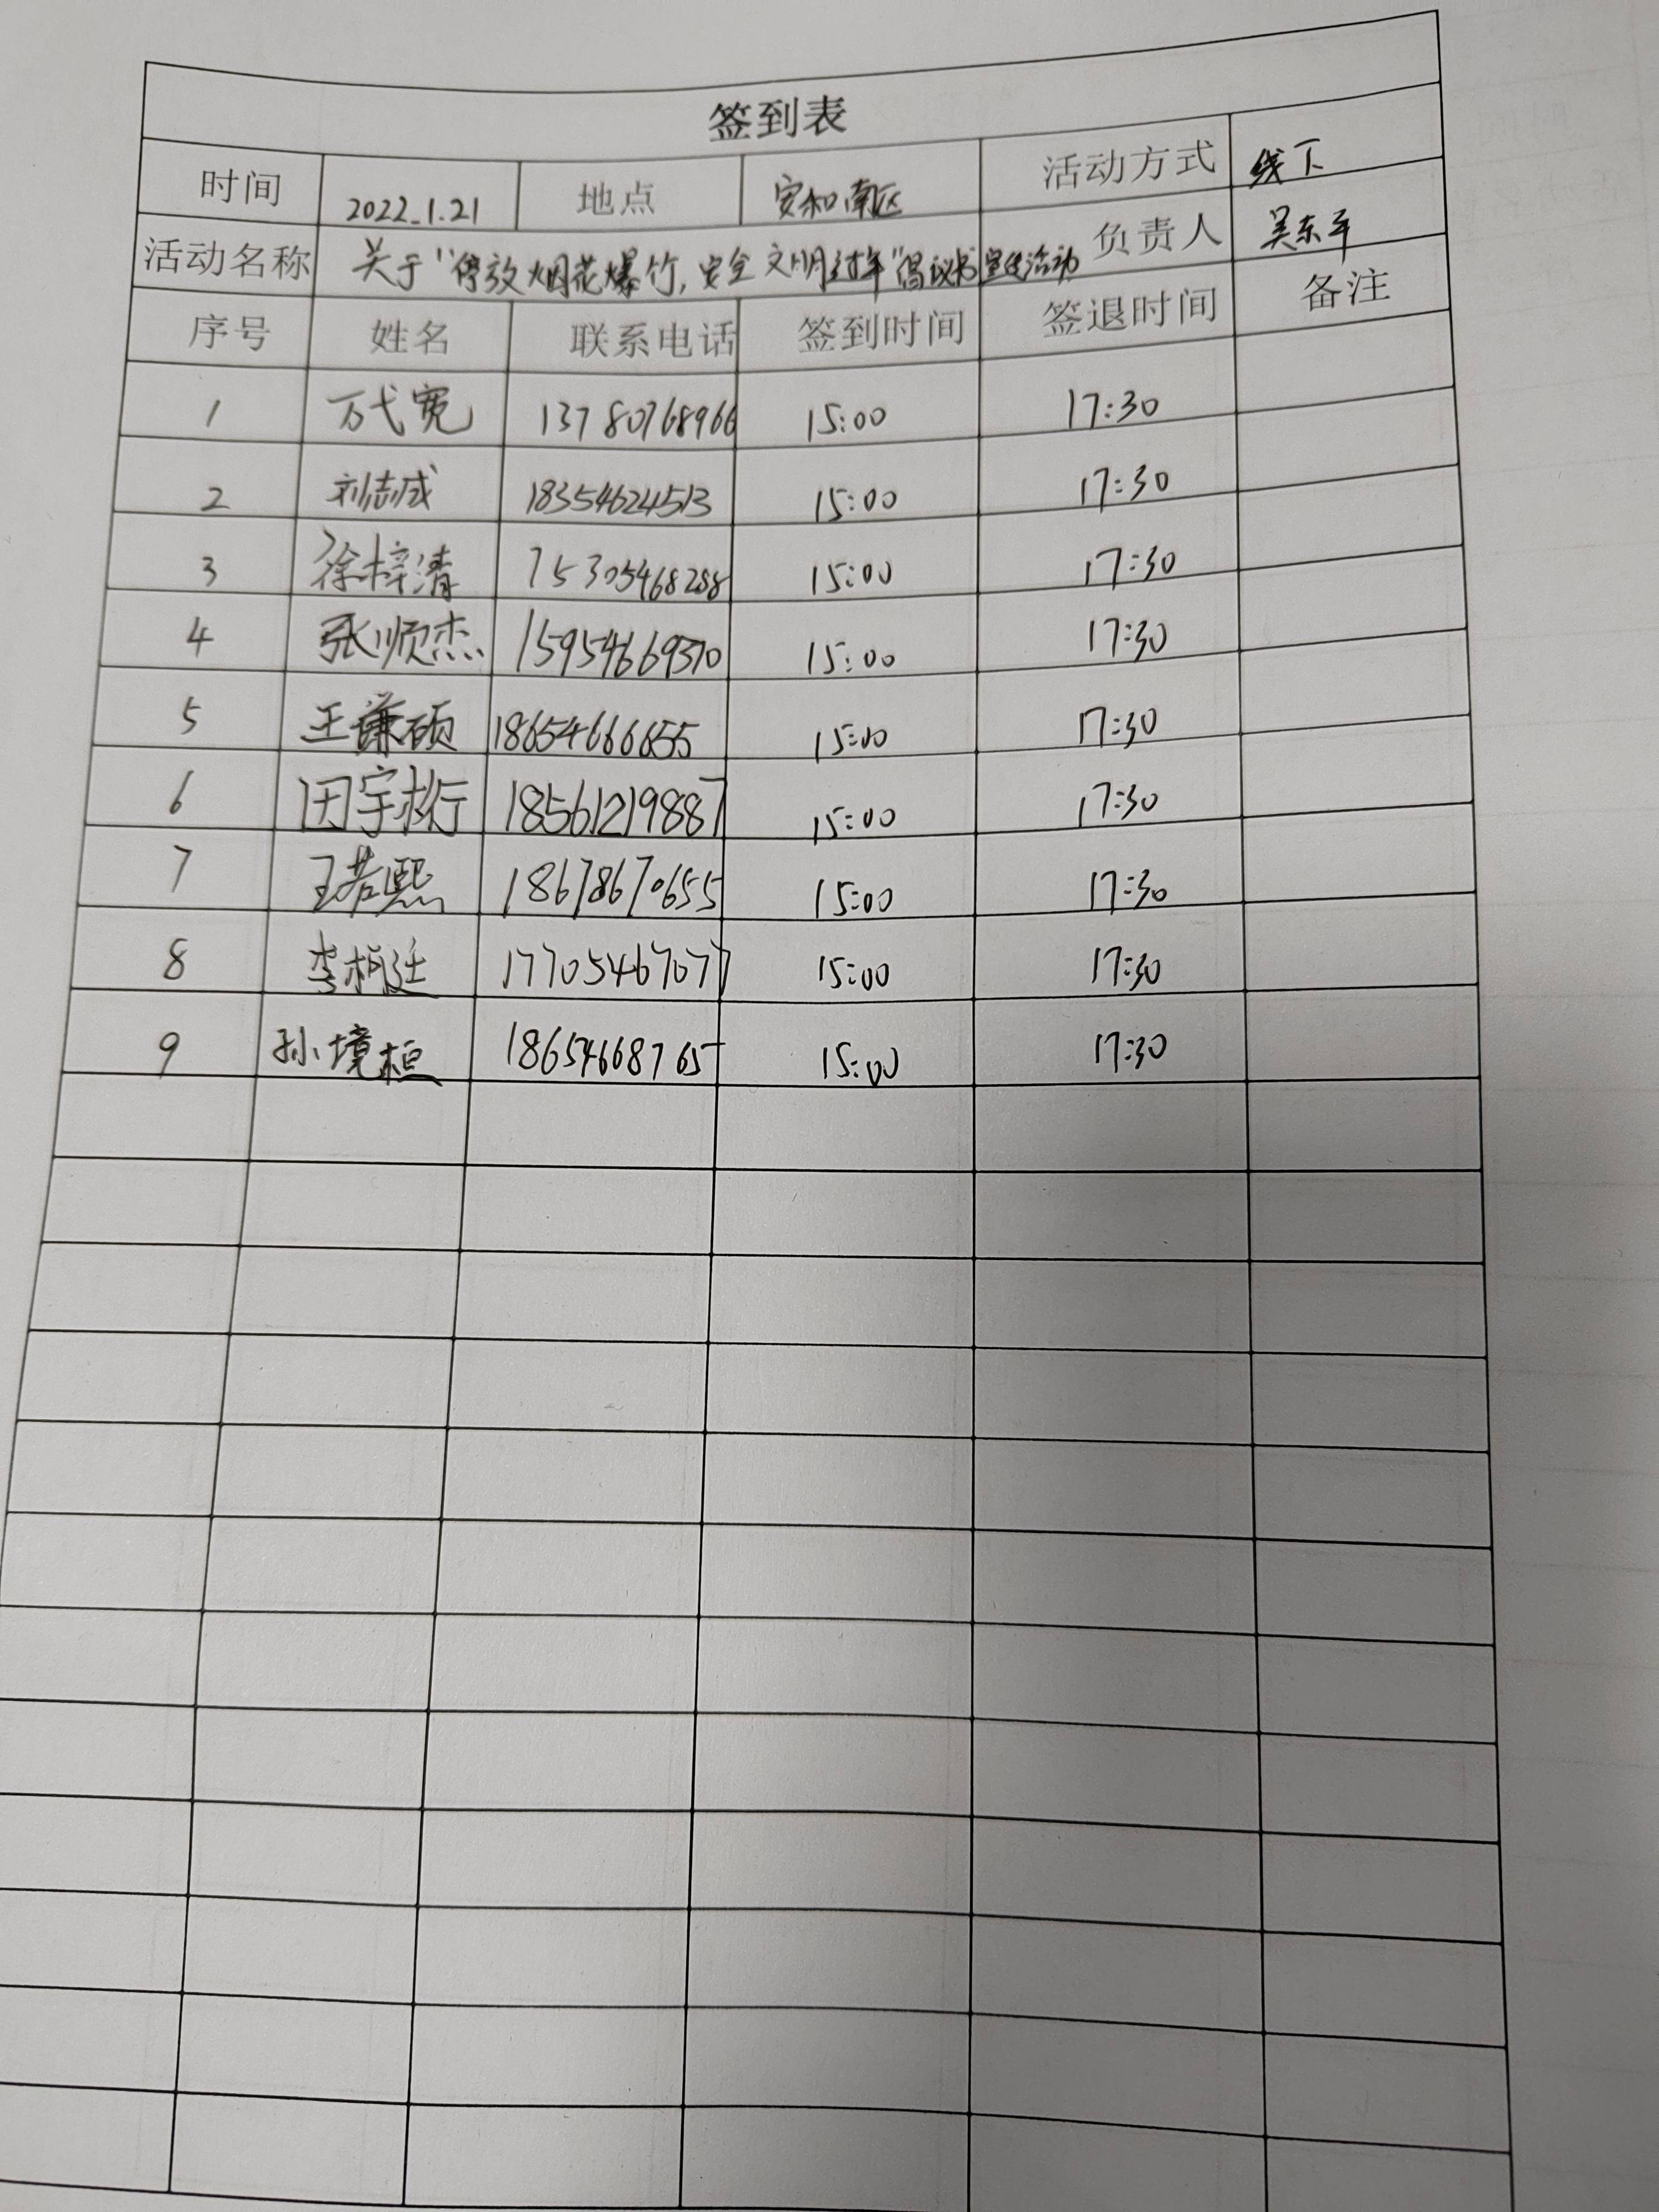 签到表
时间 2022.1.21 地点 安和南区 活动方式 线下
活动名称 关于“停放烟花爆竹,安全文明过年”倡议书宣传活动 负责人 吴东平
序号 姓名 联系电话 签到时间 签退时间 备注
1 万弋宽 13780768966 15:00 17:30
2 刘志成 18354624513 15:00 17:30
3 徐梓清 15305468288 15:00 17:30
4 张顺杰 15954669370 15:00 17:30
5 王谦硕 18654666655 15:00 17:30
6 田宇桁 18561219887 15:00 17:30
7 王若熙 18678670655 15:00 17:30
8 李柯廷 17705467077 15:00 17:30
9 孙境桓 18654668765 15:00 17:30